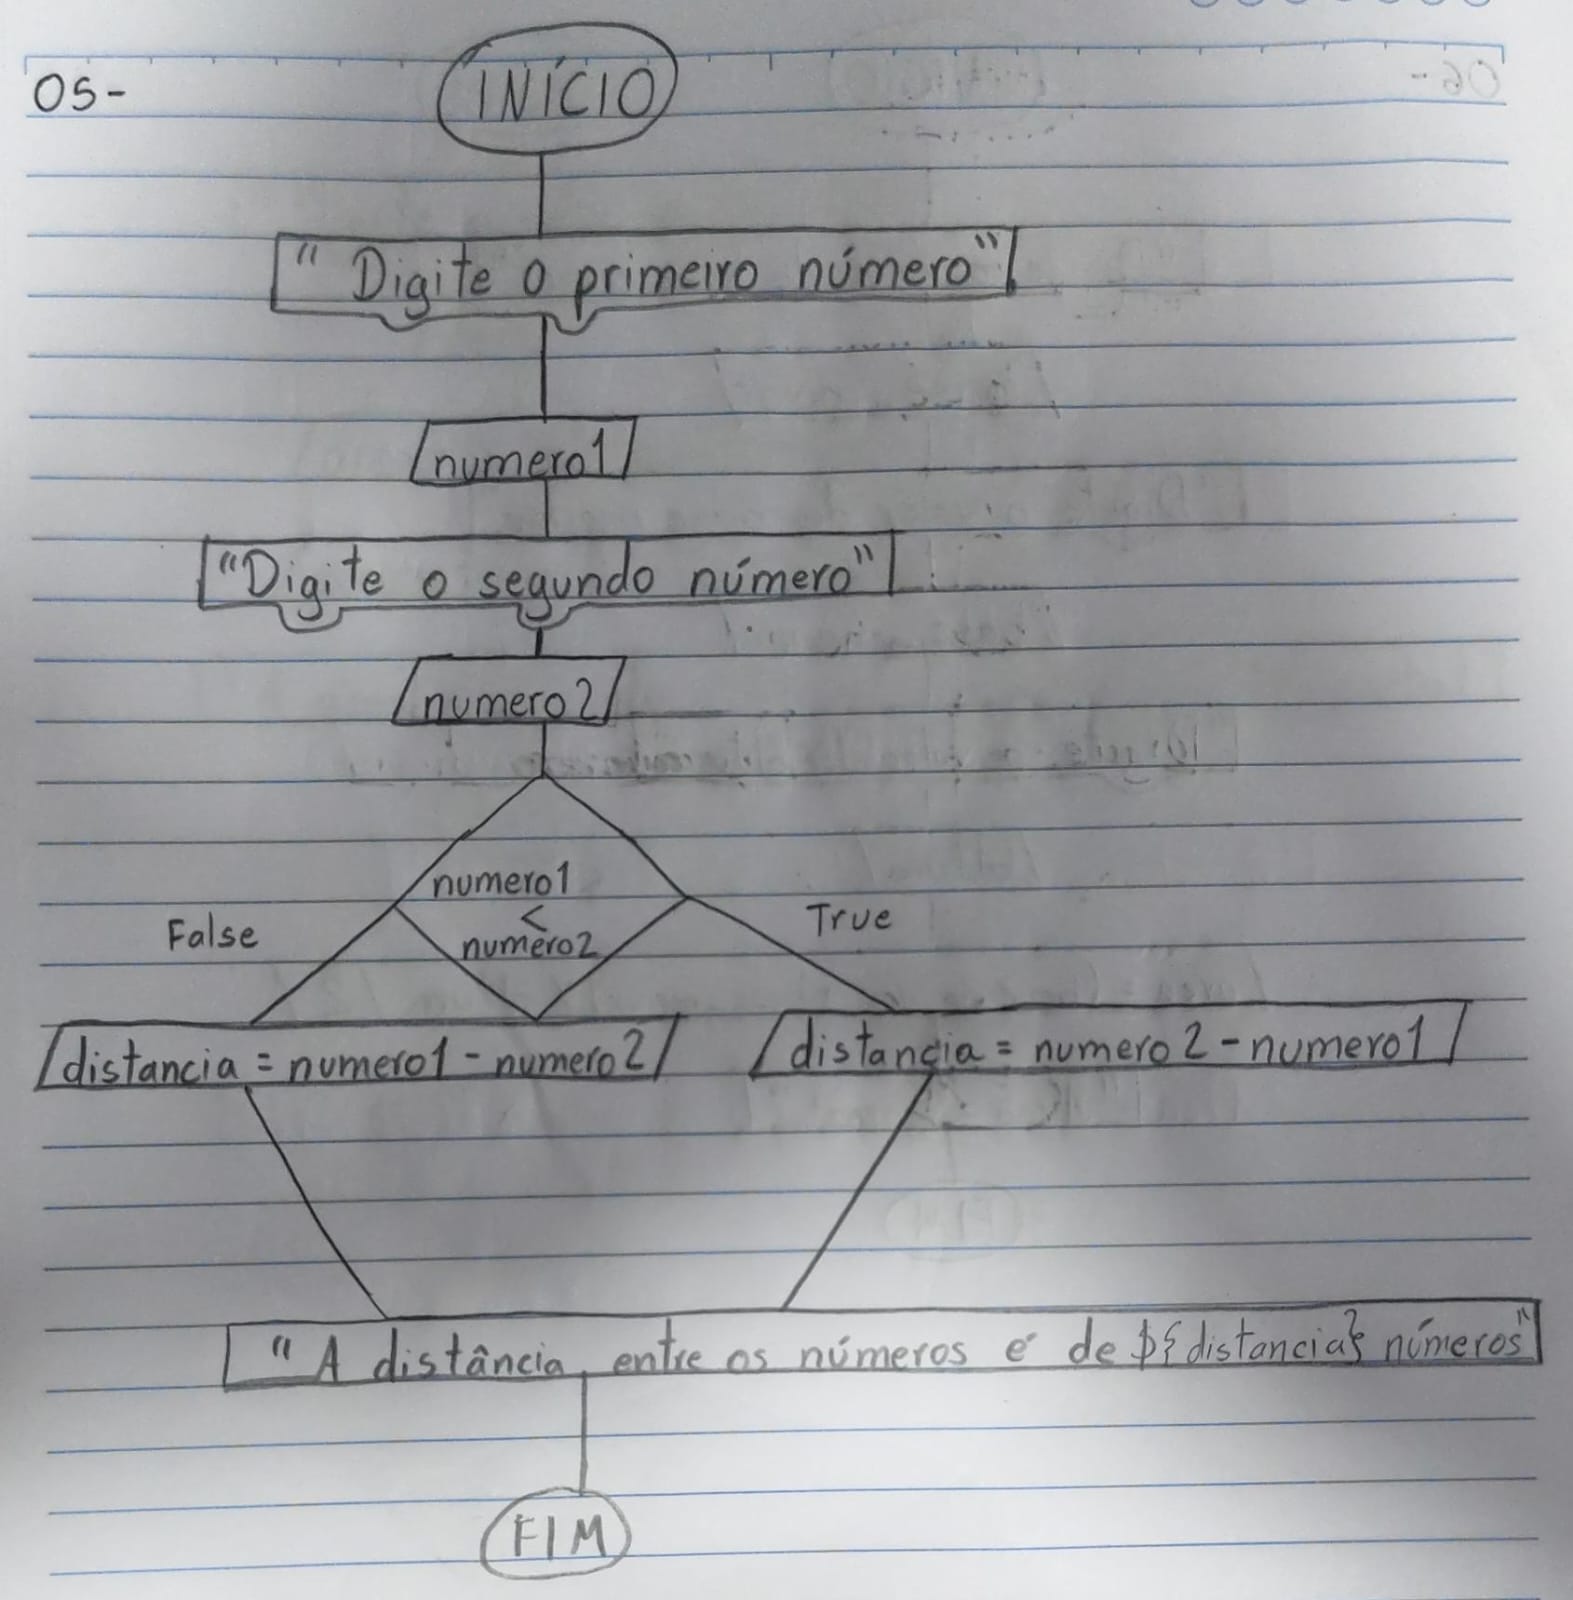 05-
INÍCIO
" Digite o primeiro número"
numero1
"Digite o segundo número"
numero2
numero1
<
numero2
False
True
distancia = numero1 - numero2
distancia = numero2 - numero1
"A distância entre os números é de ${distancia} números"
FIM